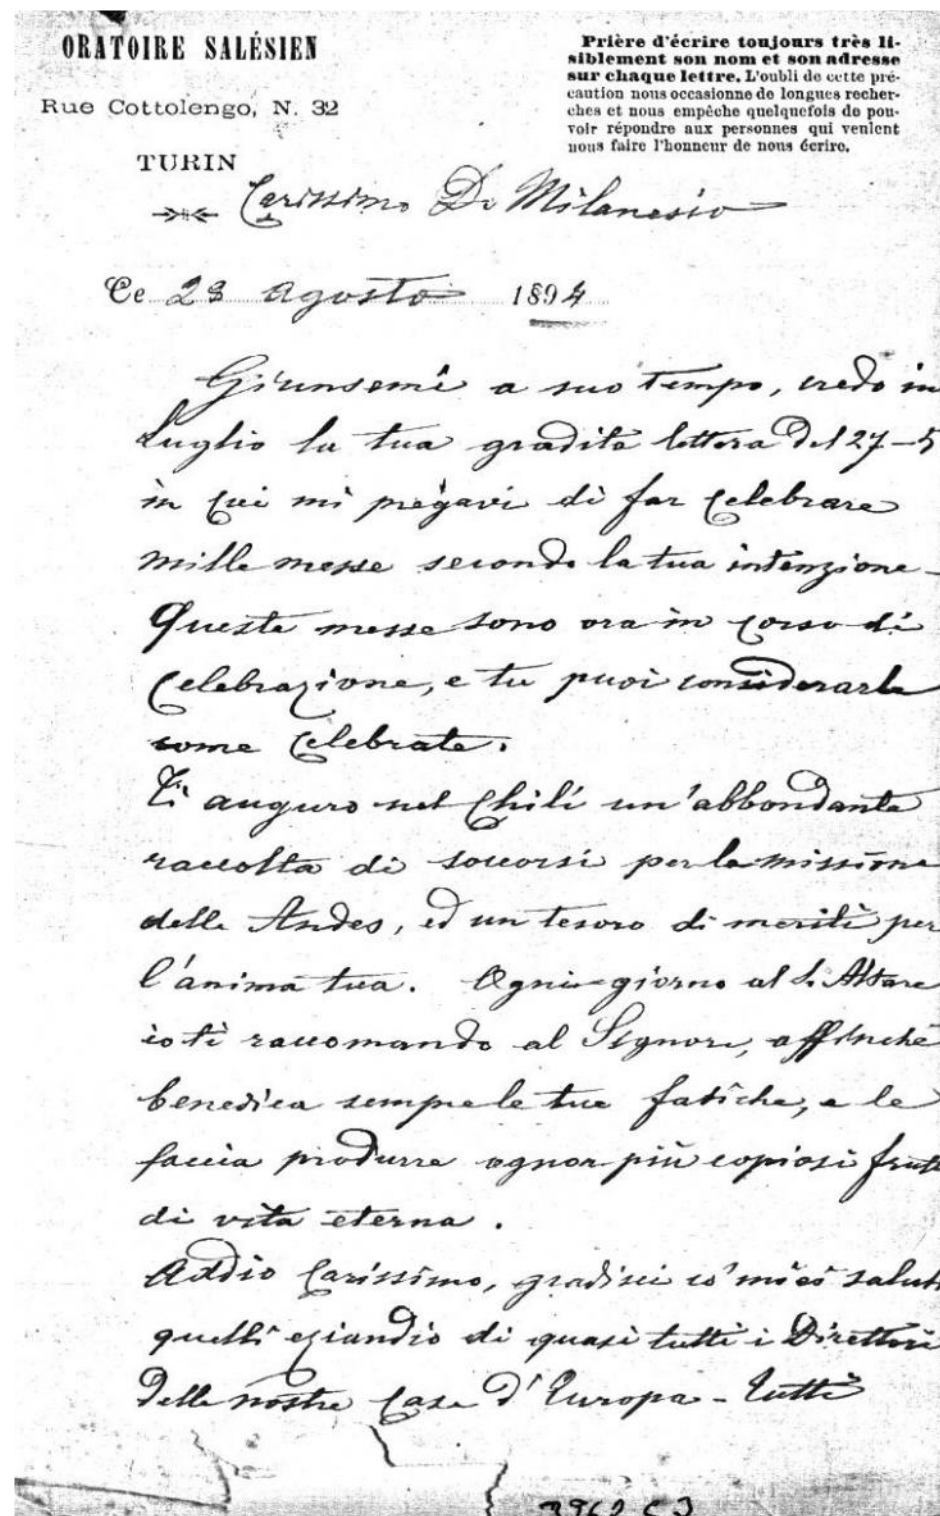 ORATOIRE SALÉSIEN
Rue Cottolengo, N. 32
TURIN
Prière d'écrire toujours très li-
siblement son nom et son adresse
sur chaque lettre. L'oubli de cette pré-
caution nous occasionne de longues recher-
ches et nous empêche quelquefois de pou-
voir répondre aux personnes qui veulent
nous faire l'honneur de nous écrire.
Carissimo D. Milanesio
Ce 28 agosto 1894
Giunsemi a suo tempo, credo in
Luglio la tua gradita lettera del 27-5
in cui mi pregavi di far celebrare
mille messe secondo la tua intenzione-
Queste messe sono ora in corso di
celebrazione, e tu puoi considerarle
come celebrate.
Ti auguro nel Chilí un'abbondante
raccolta di soccorsi per la missione
delle Andes, ed un tesoro di meriti per
l'anima tua. Ogni giorno al S. Altare
io ti raccomando al Signore, affinchè
benedica sempre le tue fatiche, e le
faccia produrre ognor più copiosi frutti
di vita eterna.
Addio Carissimo, gradisci co' miei saluti
quelli eziandio di quasi tutti i Direttori
delle nostre Case d'Europa - tutti